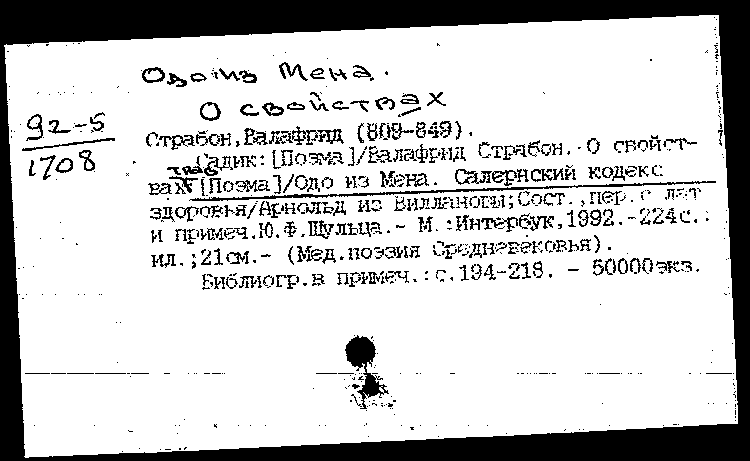 Одо из Мена.
О свойствах
92-5
1708
Страбон, Валафрид (809-849).
Садик: [Поэма]/Валафрид Страбон. О свойст-
трав
вах [Поэма]/Одо из Мена. Салернский кодекс
здоровья/Арнольд из Виллановы; Сост., пер. с лат
и примеч. Ю.Ф.Шульца. - М.: Интербук, 1992. - 224с.:
ил.; 21см. - (Мед. поэзия Средневековья).
Библиогр. в примеч.: с.194-218. - 50000экз.